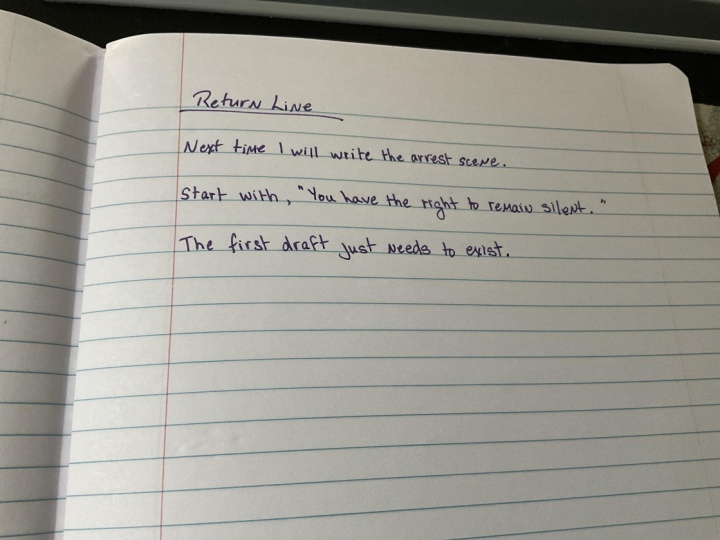 Return Line
Next time I will write the arrest scene.
Start with, "You have the right to remain silent."
The first draft just needs to exist.